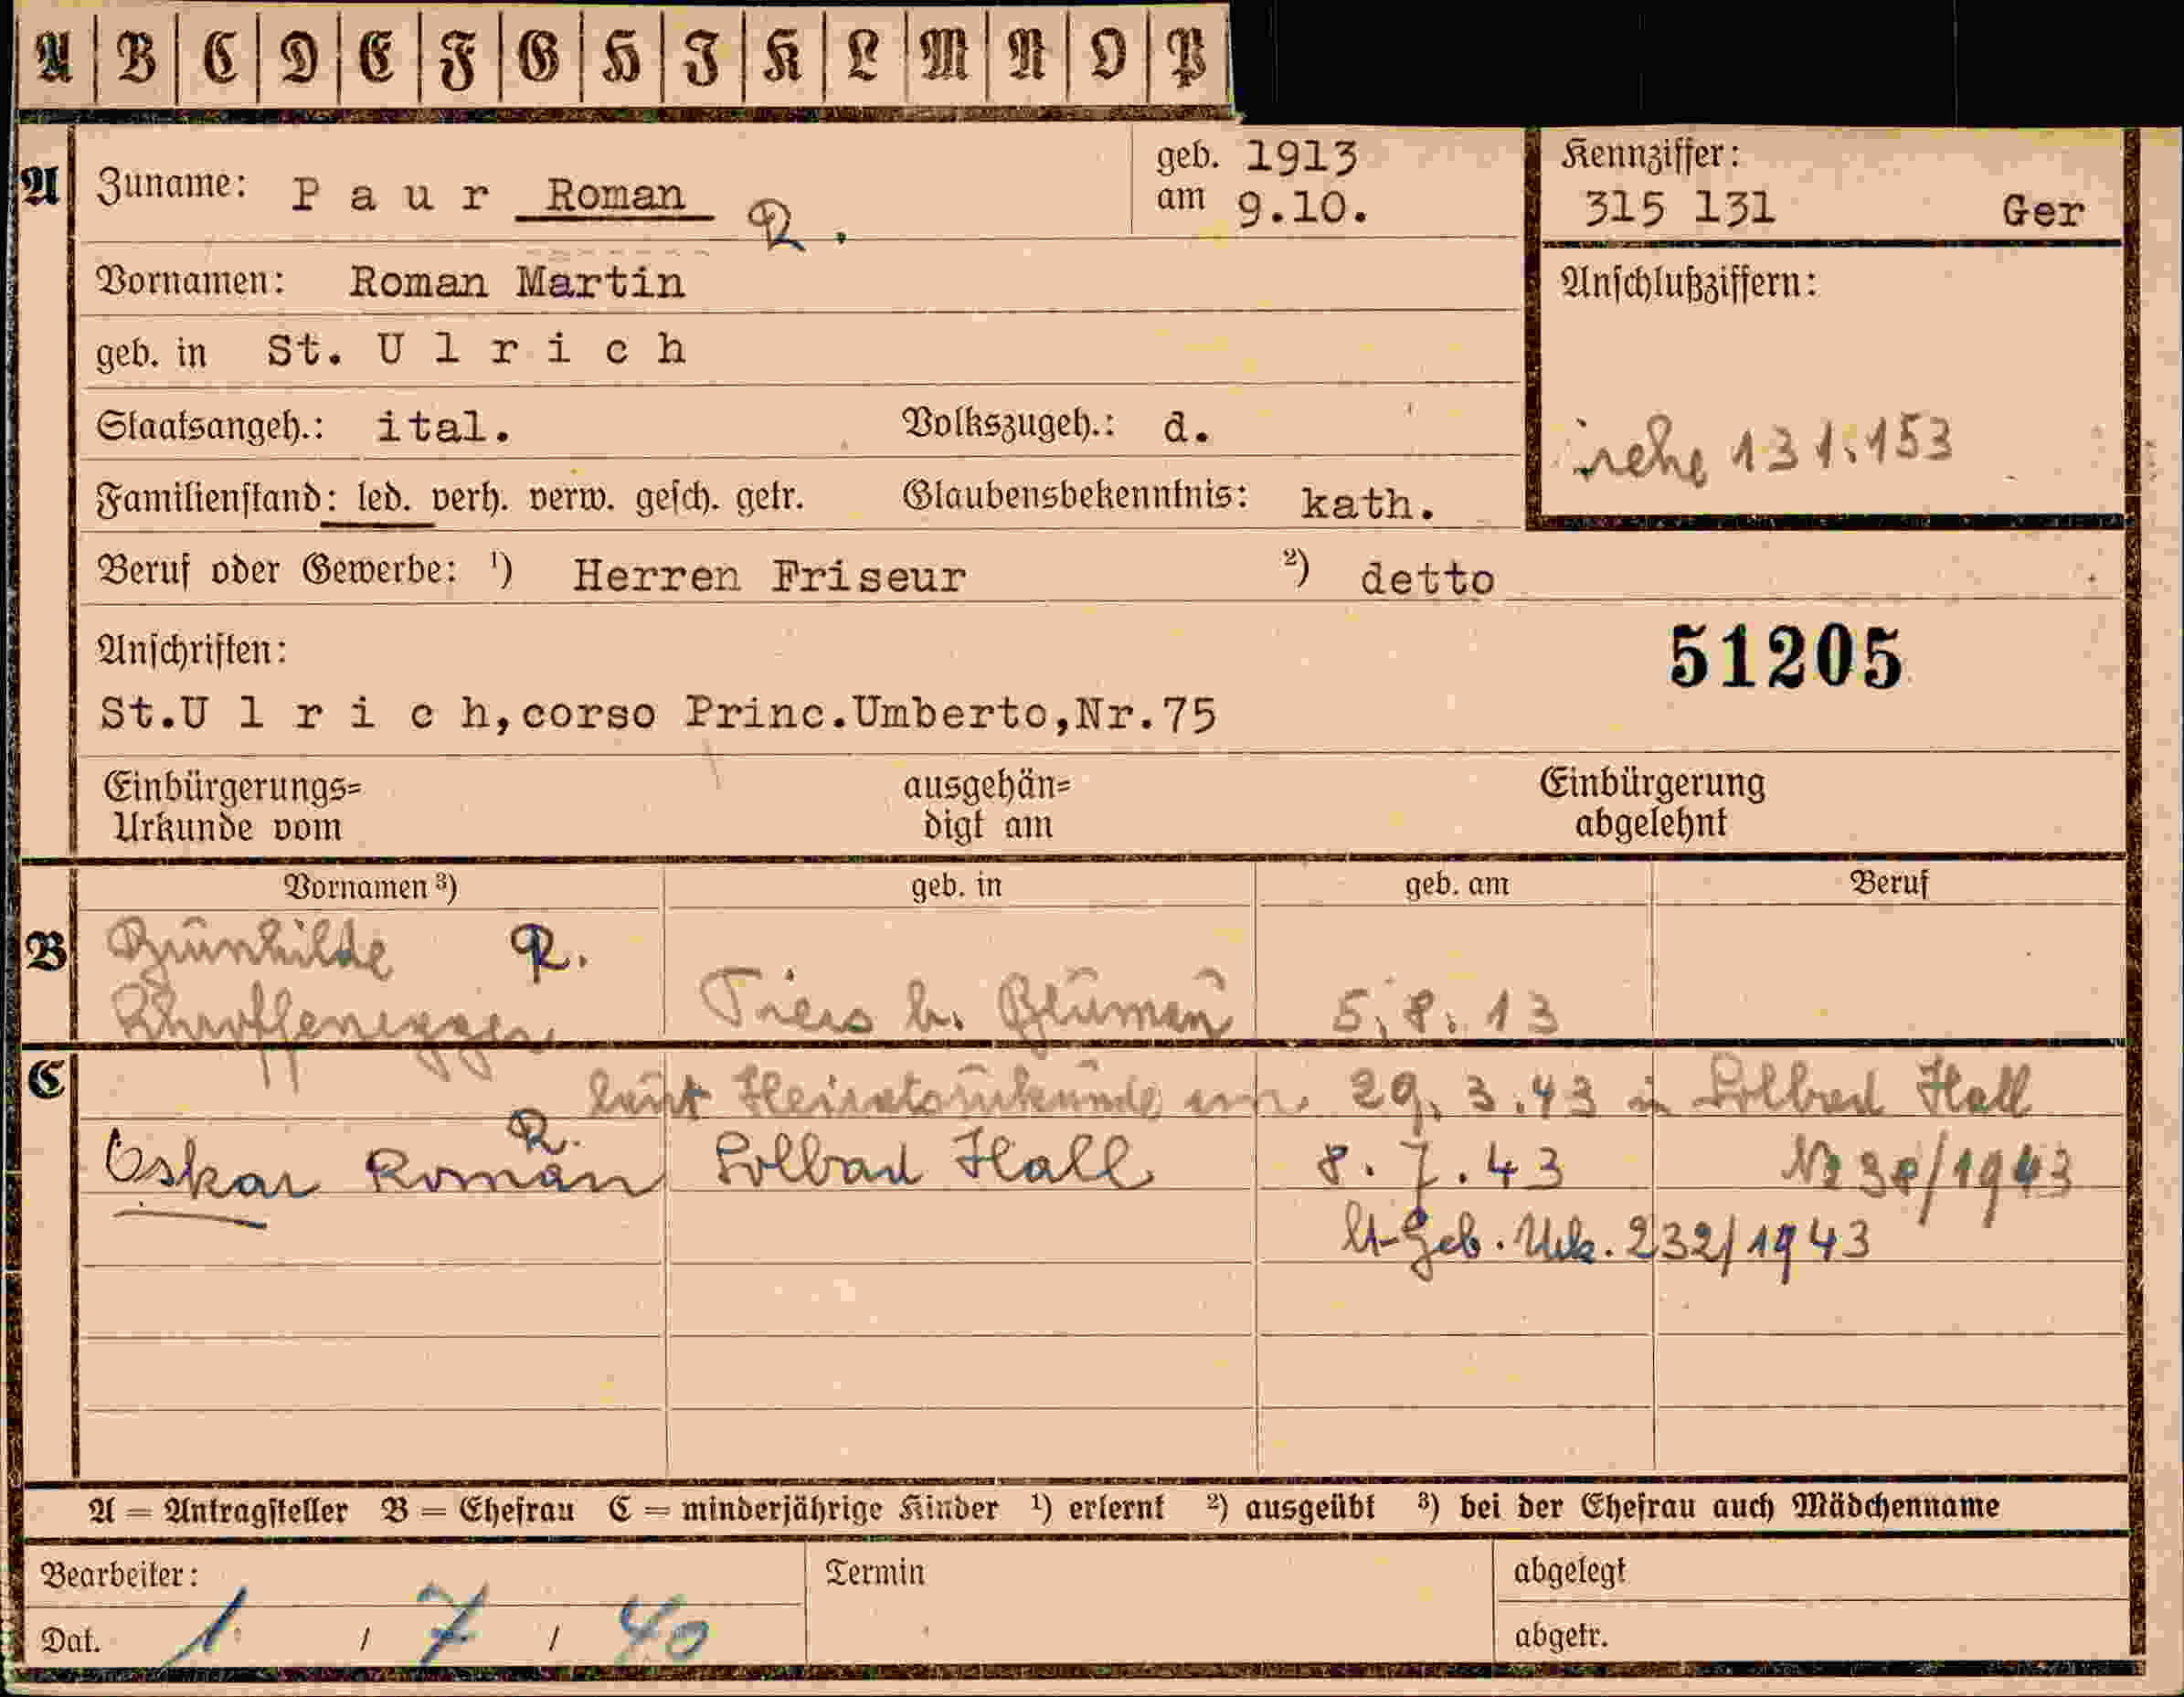 A B C D E F G H I K L M N O P
A Zuname: P a u r Roman R.
geb. 1913
am 9.10.
Kennziffer:
315 131 Ger
Vornamen: Roman Martin
Anschlußziffern:
geb. in St. U l r i c h
Staatsangeh.: ital. Volkszugeh.: d.
siehe 131.153
Familienstand: led. verh. verw. gesch. getr. Glaubensbekenntnis: kath.
Beruf oder Gewerbe: ¹) Herren Friseur ²) detto
Anschriften:
51205
St.U l r i c h,corso Princ.Umberto,Nr.75
Einbürgerungs=
Urkunde vom
ausgehän=
digt am
Einbürgerung
abgelehnt
Vornamen ³) geb. in geb. am Beruf
B Brünhilde R.
Tiers b. Blumau 5.8.13
C laut Heiratsurkunde am 29.3.43 in Solbad Hall
R.
Oskar Roman Solbad Hall 8.7.43 Nr 38/1943
lt Geb. Urk. 232/1943
A = Antragsteller B = Ehefrau C = minderjährige Kinder ¹) erlernt ²) ausgeübt ³) bei der Ehefrau auch Mädchenname
Bearbeiter: Termin abgelegt
Dat. 1 / 7 / 40 abgetr.